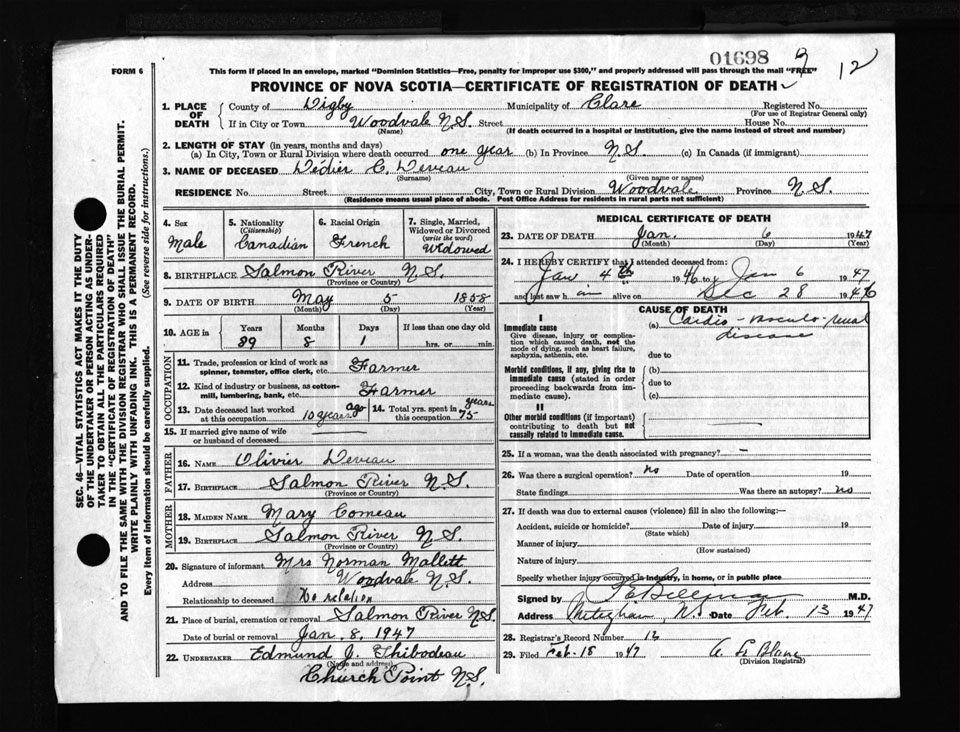 01698
9 12
FORM 6
This form if placed in an envelope, marked "Dominion Statistics—Free, penalty for improper use $300," and properly addressed will pass through the mail "FREE"
PROVINCE OF NOVA SCOTIA—CERTIFICATE OF REGISTRATION OF DEATH
1. PLACE OF DEATH County of Digby Municipality of Clare Registered No.
(For use of Registrar General only)
If in City or Town Woodvale N.S. Street House No.
(Name) (If death occurred in a hospital or institution, give the name instead of street and number)
2. LENGTH OF STAY (in years, months and days)
(a) In City, Town or Rural Division where death occurred one year (b) In Province N.S. (c) In Canada (if immigrant)
3. NAME OF DECEASED Didier C. Deveau
(Surname) (Given name or names)
RESIDENCE No. Street City, Town or Rural Division Woodvale Province N.S.
(Residence means usual place of abode. Post Office Address for residents in rural parts not sufficient)
4. Sex Male
5. Nationality (Citizenship) Canadian
6. Racial Origin French
7. Single, Married, Widowed or Divorced (write the word) Widowed
8. BIRTHPLACE Salmon River N.S.
(Province or Country)
9. DATE OF BIRTH May 5 1858
(Month) (Day) (Year)
10. AGE in Years Months Days If less than one day old
89 8 1 hrs. or min.
OCCUPATION
11. Trade, profession or kind of work as spinner, teamster, office clerk, etc. Farmer
12. Kind of industry or business, as cotton-mill, lumbering, bank, etc. Farmer
13. Date deceased last worked at this occupation 10 years ago
14. Total yrs. spent in this occupation 75 years
15. If married give name of wife or husband of deceased
FATHER
16. NAME Olivier Deveau
17. BIRTHPLACE Salmon River N.S.
(Province or Country)
MOTHER
18. MAIDEN NAME Mary Comeau
19. BIRTHPLACE Salmon River N.S.
(Province or Country)
20. Signature of informant Mrs Norman Mallett
Address Woodvale N.S.
Relationship to deceased No relation
21. Place of burial, cremation or removal Salmon River N.S.
Date of burial or removal Jan. 8, 1947
22. UNDERTAKER Edmund J. Thibodeau
(Name and address)
Church Point N.S.
MEDICAL CERTIFICATE OF DEATH
23. DATE OF DEATH Jan. 6 1947
(Month) (Day) (Year)
24. I HEREBY CERTIFY that I attended deceased from:
Jan 4th 1946 to Jan 6 1947
and last saw h im alive on Dec 28 1946
CAUSE OF DEATH
I
Immediate cause
Give disease, injury or complication which caused death, not the mode of dying, such as heart failure, asphyxia, asthenia, etc.
(a) Cardio-vasculo-renal
disease
due to
Morbid conditions, if any, giving rise to immediate cause (stated in order proceeding backwards from immediate cause).
(b)
due to
(c)
II
Other morbid conditions (if important) contributing to death but not causally related to immediate cause.
25. If a woman, was the death associated with pregnancy? -
26. Was there a surgical operation? no Date of operation 19
State findings Was there an autopsy? no
27. If death was due to external causes (violence) fill in also the following:—
Accident, suicide or homicide? Date of injury 19
(State which)
Manner of injury
(How sustained)
Nature of injury
Specify whether injury occurred in industry, in home, or in public place
Signed by M.D.
Address Meteghan, N.S. Date Feb. 13 1947
28. Registrar's Record Number 12
29. Filed Feb. 18 1947 A. LeBlanc
(Division Registrar)
SEC. 46—VITAL STATISTICS ACT MAKES IT THE DUTY
OF THE UNDERTAKER OR PERSON ACTING AS UNDER-
TAKER TO OBTAIN ALL THE PARTICULARS REQUIRED
IN THE "CERTIFICATE OF REGISTRATION OF DEATH"
AND TO FILE THE SAME WITH THE DIVISION REGISTRAR WHO SHALL ISSUE THE BURIAL PERMIT.
WRITE PLAINLY WITH UNFADING INK. THIS IS A PERMANENT RECORD.
Every item of information should be carefully supplied. (See reverse side for instructions.)